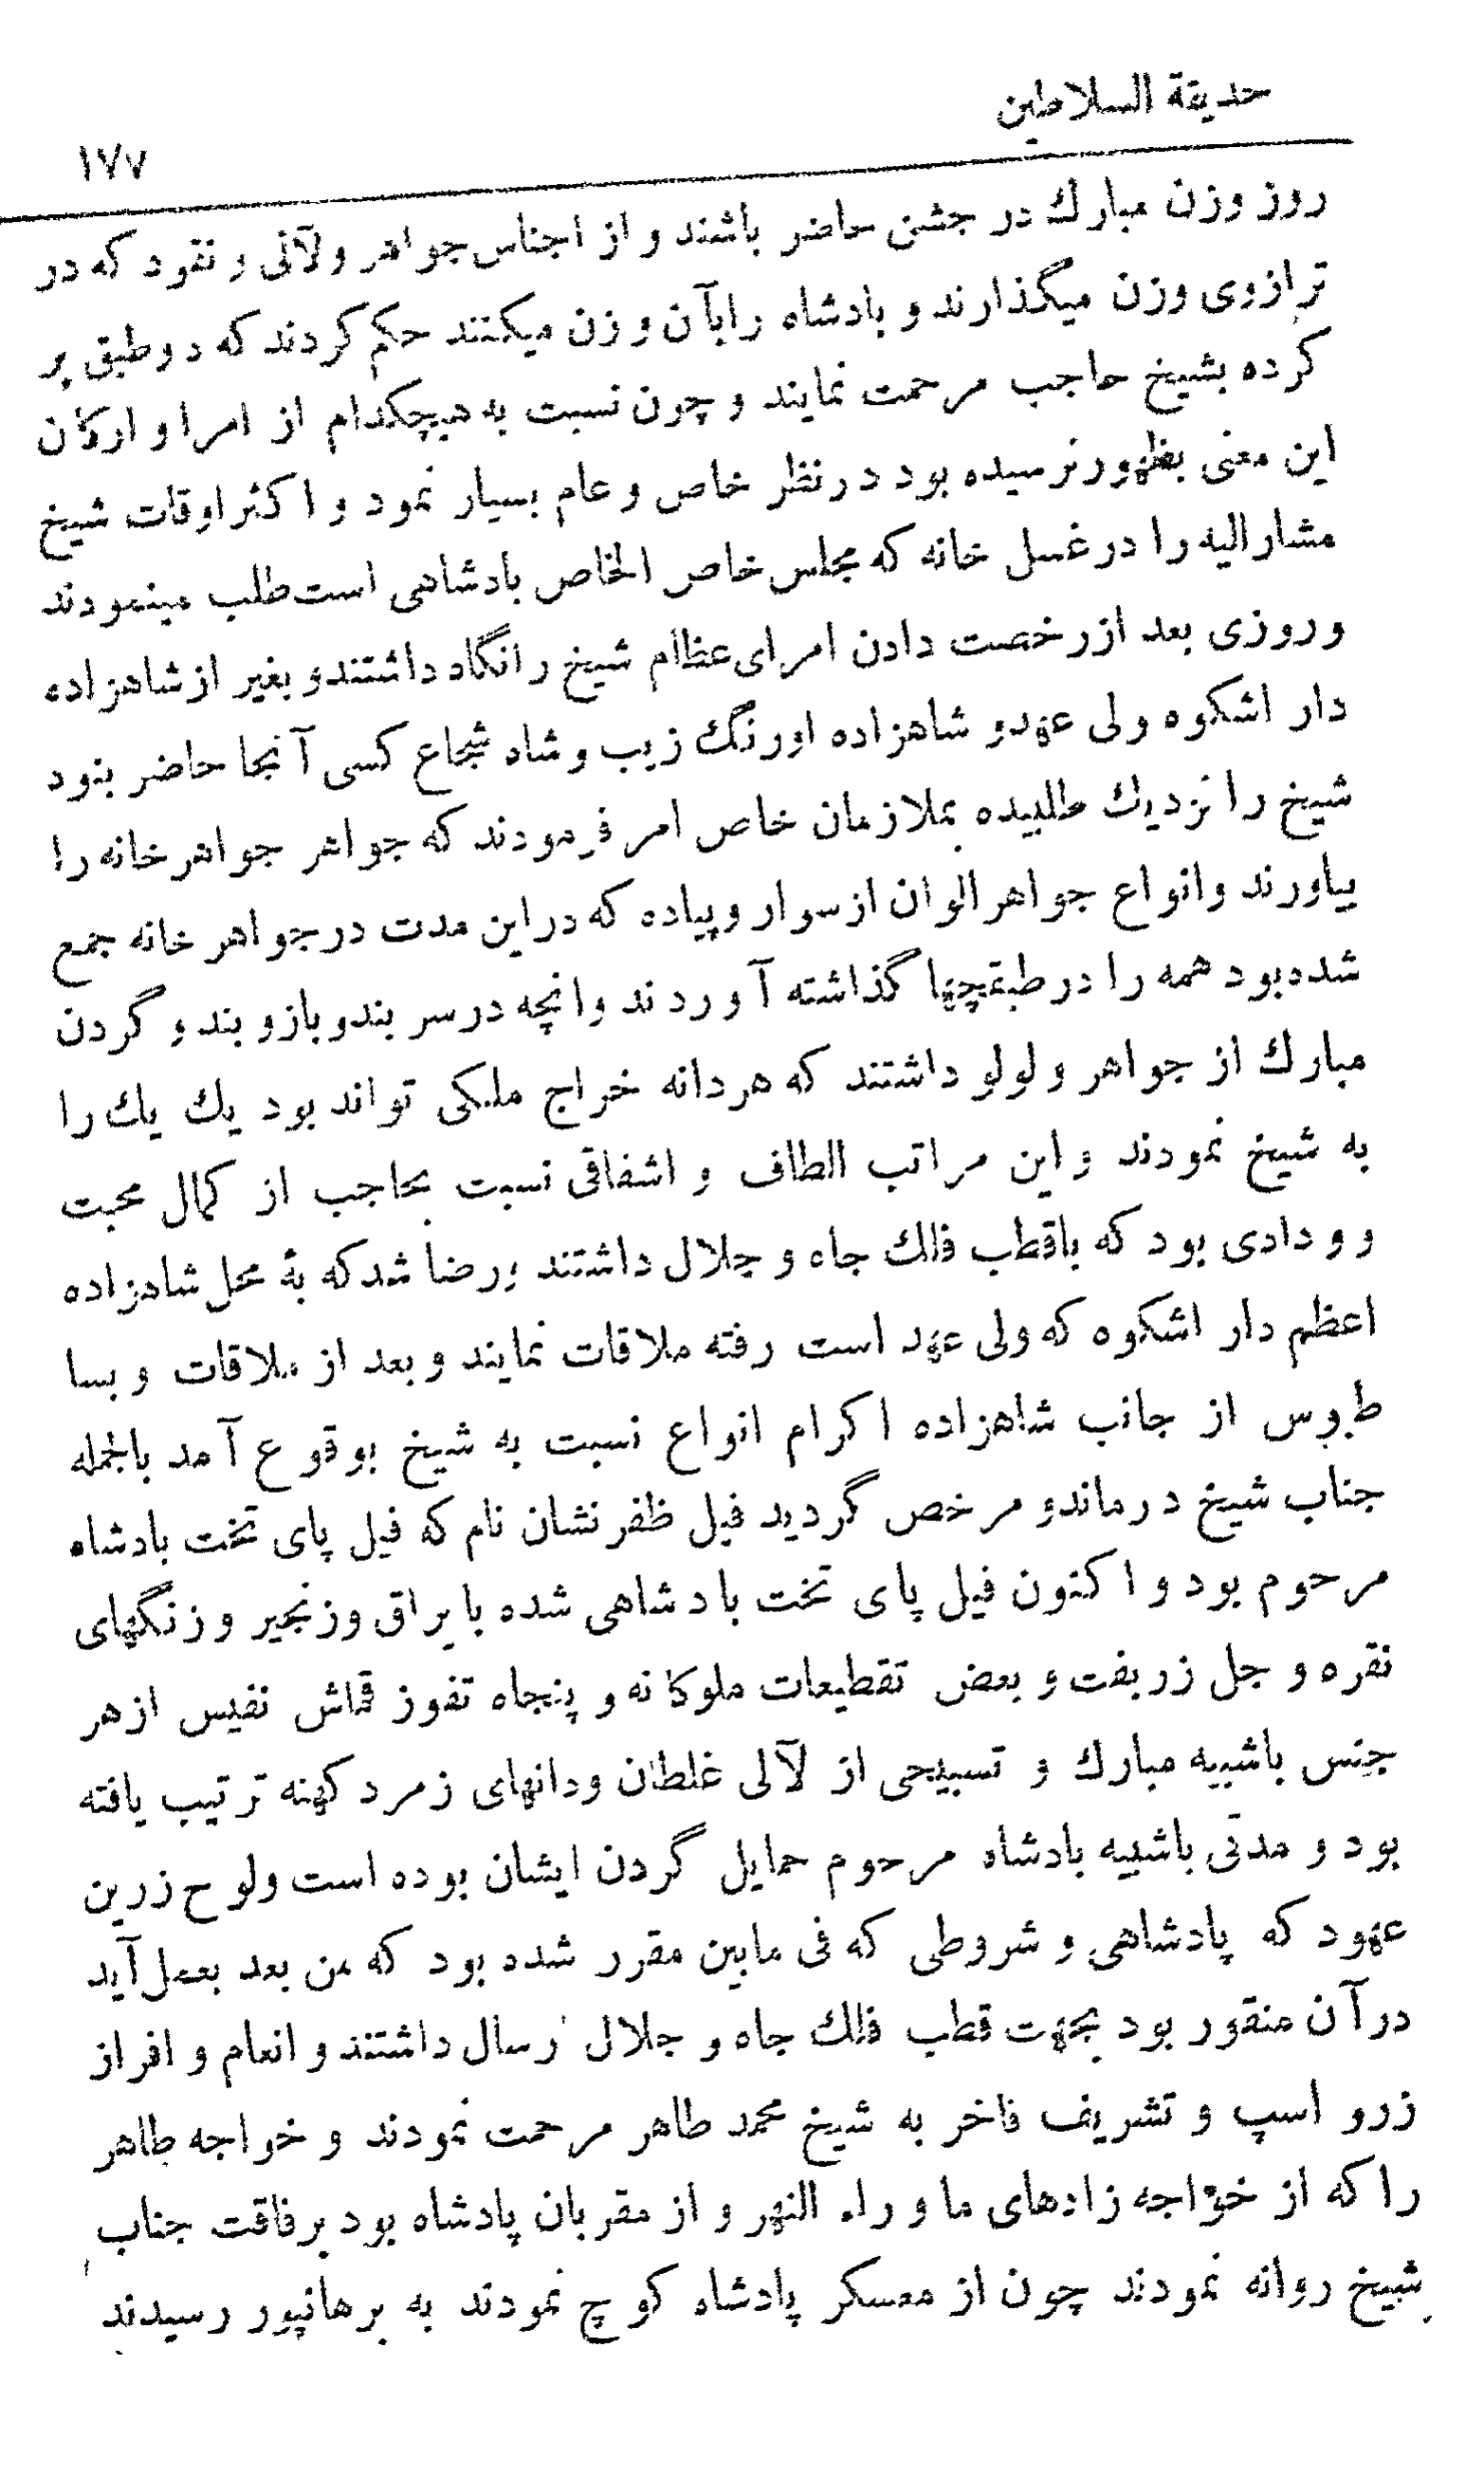 حدیقة السلاطین
۱۷۷
روز وزن مبارك در جشن حاضر باشند و از اجناس جواهر ولآلی و نقود که در
ترازوی وزن میگذارند و بادشاه رابآن وزن میکنند حکم کردند که دوطبق پر
کرده بشیخ حاجب مرحمت نمایند و چون نسبت به هیچکدام از امرا و ارکان
این معنی بظهور نرسیده بود در نظر خاص و عام بسیار نمود و اکثر اوقات شیخ
مشارالیه را در غسل خانه که مجلس خاص الخاص بادشاهی است طلب مینمودند
و روزی بعد از رخصت دادن امرای عظام شیخ را نگاه داشتند و بغیر از شاهزاده
دار اشکوه ولی عهدو شاهزاده اورنگ زیب و شاه شجاع کسی آنجا حاضر بنود
شیخ را نزدیك طلبیده بملازمان خاص امر فرمودند که جواهر جواهر خانه را
بیاورند و انواع جواهر الوان از سوار و پیاده که در این مدت در جواهر خانه جمع
شده بود همه را در طبقچها گذاشته آوردند وانچه در سر بندو بازو بند و گردن
مبارك از جواهر و لولو داشتند که هردانه خراج ملکی تواند بود یك یك را
به شیخ نمودند و این مراتب الطاف و اشفاقی نسبت بحاجب از کمال محبت
و ودادی بود که باقطب فلك جاه و جلال داشتند و رضا شد که به محل شاهزاده
اعظم دار اشکوه که ولی عهد است رفته ملاقات نمایند و بعد از ملاقات و بسا
طبوس از جانب شاهزاده اکرام انواع نسبت به شیخ بوقوع آمد بالجمله
جناب شیخ درماندو مرخص گردید فیل ظفر نشان نام که فیل پای تخت بادشاه
مرحوم بود و اکنون فیل پای تخت بادشاهی شده با یراق وزنجیر و زنگهای
نقره و جل زربفت و بعض تقطیعات ملوکانه و پنجاه تفوز قماش نفیس ازهر
جنس باشبیه مبارك و تسبیحی از لآلی غلطان ودانهای زمرد کهنه ترتیب یافته
بود و مدتی باشبیه بادشاه مرحوم حمایل گردن ایشان بوده است ولوح زرین
عهود که پادشاهی و شروطی که فی مابین مقرر شده بود که من بعد بعمل آید
درآن منقور بود بجهت قطب فلك جاه و جلال ارسال داشتند و انعام و افراز
زرو اسپ و تشریف فاخر به شیخ محمد طاهر مرحمت نمودند و خواجه طاهر
را که از خواجه زادهای ما و راء النهر و از مقربان پادشاه بود برفاقت جناب
شیخ روانه نمودند چون از معسکر پادشاه کوچ نمودند به برهانپور رسیدند